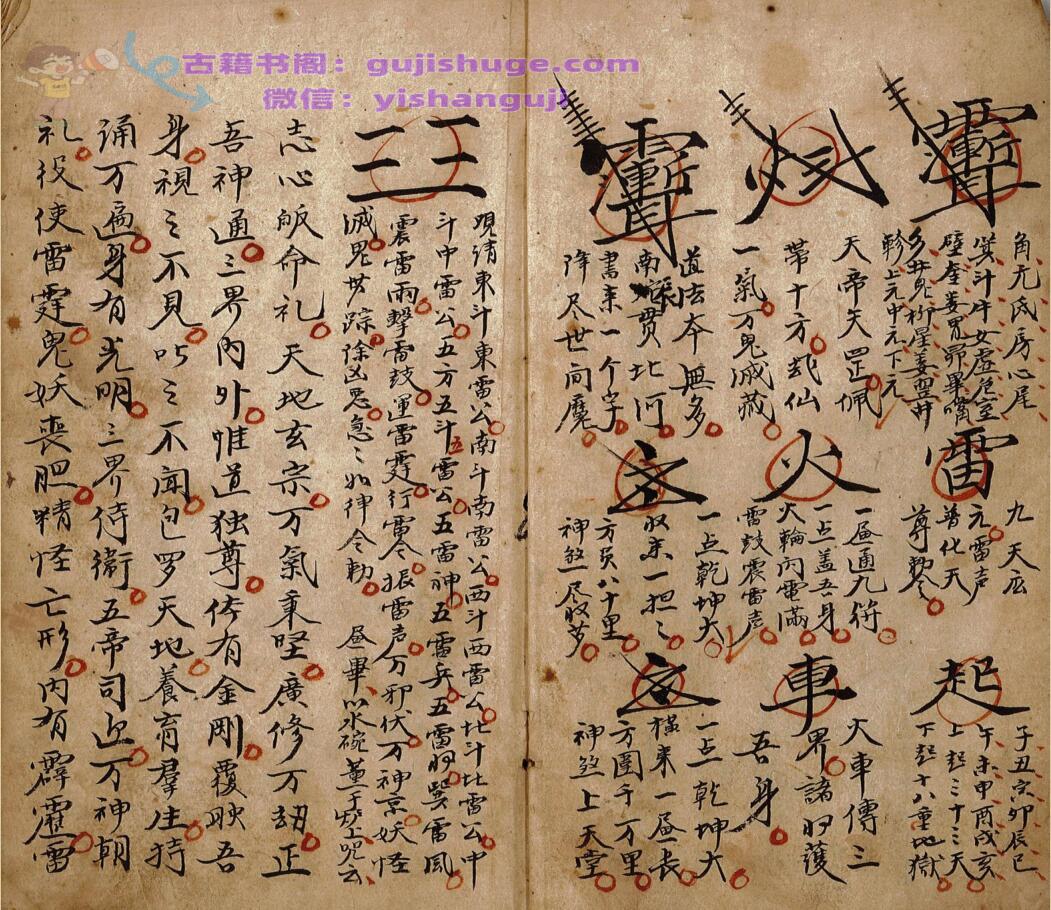 古籍书阁：gujishuge.com
微信：yishanguji
角亢氐房心尾
箕斗牛女虚危室
壁奎娄胃昴畢嘴
井鬼柳星翌
軫上元中元下元
雷
九天应
元雷声
普化天
尊
起
子丑寅卯辰巳
午未申酉戌亥
上起三十三天
下起十八重地獄
天帝天罡佩
帶十方武仙
一氣万鬼滅藏
火
一昼通九符
一点盖吾身
火輪内電滿
雷鼓震雷声
車
火車傳三
界諸將護
吾身
道法本無多
南貫北河
書来一个字
降尽世间魔
一点乾坤大
收来一担々
方员八十里
神煞尽收萝
一点乾坤大
横来一昼長
方圍千万里
神煞上天堂
三三
觋請東斗東雷公南斗南雷公西斗西雷公北斗北雷公中
斗中雷公五方五斗五雷公五雷神五雷兵五雷將巽雷風
震雷雨擊雷鼓運雷霆行雷令振雷声万邪伏万神京妖怪
滅鬼世踪除凶悪急々如律令勅 昼畢以水碗董于炉上咒云
志心皈命礼天地玄宗万氣秉坚廣修万劫正
吾神通三界内外惟道独尊侍有金剛覆映吾
身視之不見听之不闻包罗天地養育羣生持
诵万遍身有光明三界侍衛五帝司迎万神朝
礼役使雷霆鬼妖丧胆精怪亡形内有霹靂雷